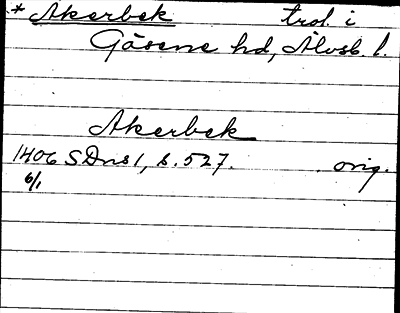 * Akerbek trol. i
Gäsene hd, Älvsb. l.
Akerbek
1406 SDns 1, s. 527. orig.
6/1